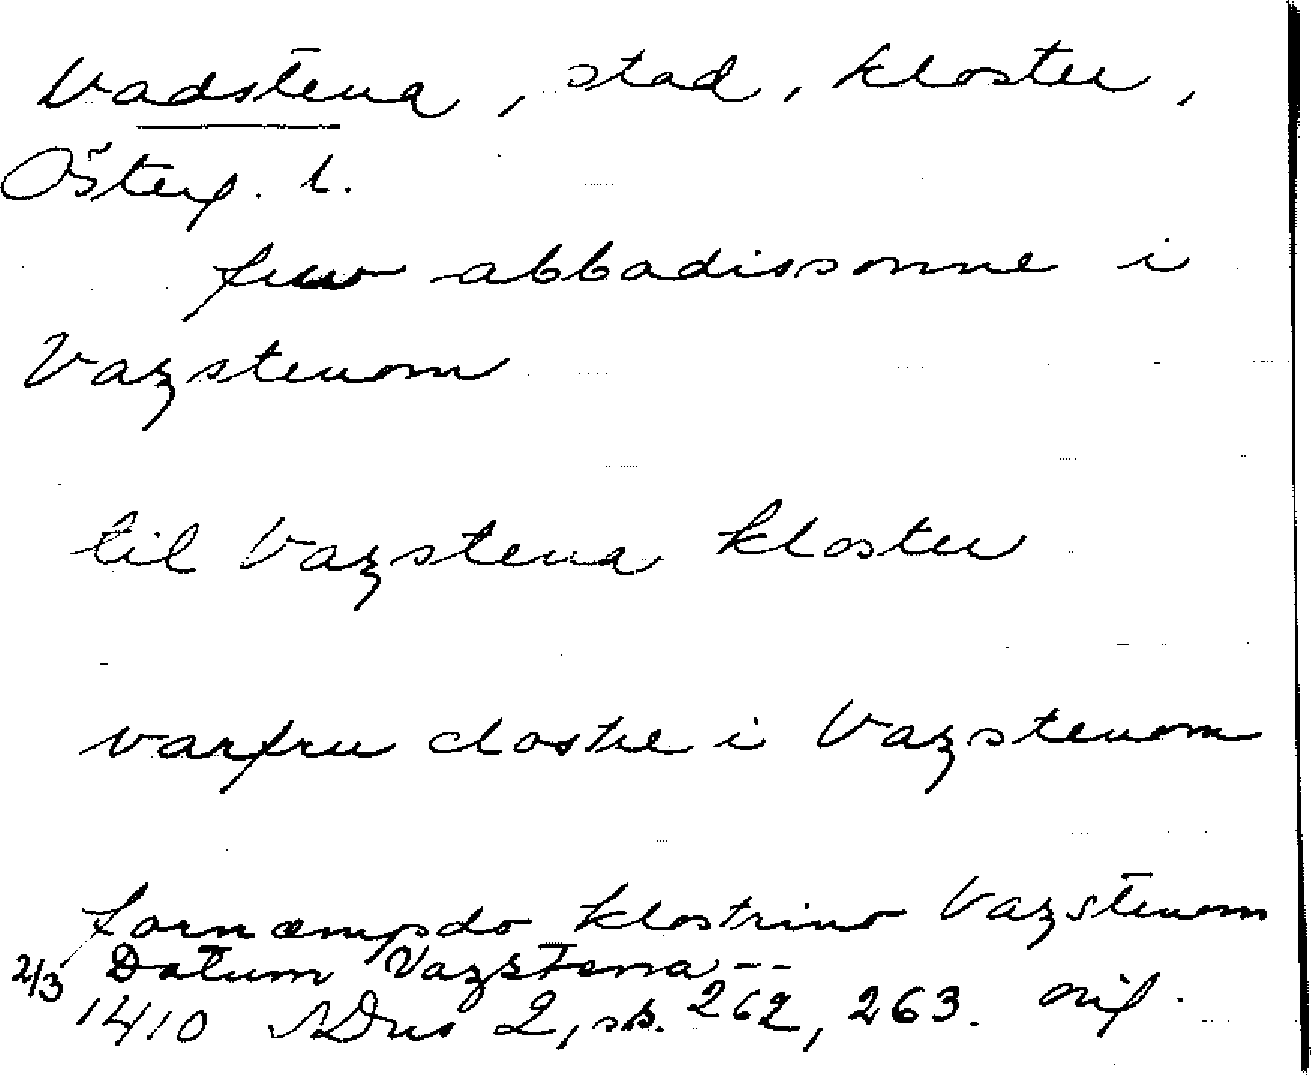 Vadstena, stad, kloster,
Österg. l.
fruo abbadissonne i
Vazstenom
til Vazstena kloster
varfru clostre i Vazstenom
fornæmpdo klostrino Vazstenom
2/3 Datum Vazstena --
1410 SDns 2, ss. 262, 263. oif.